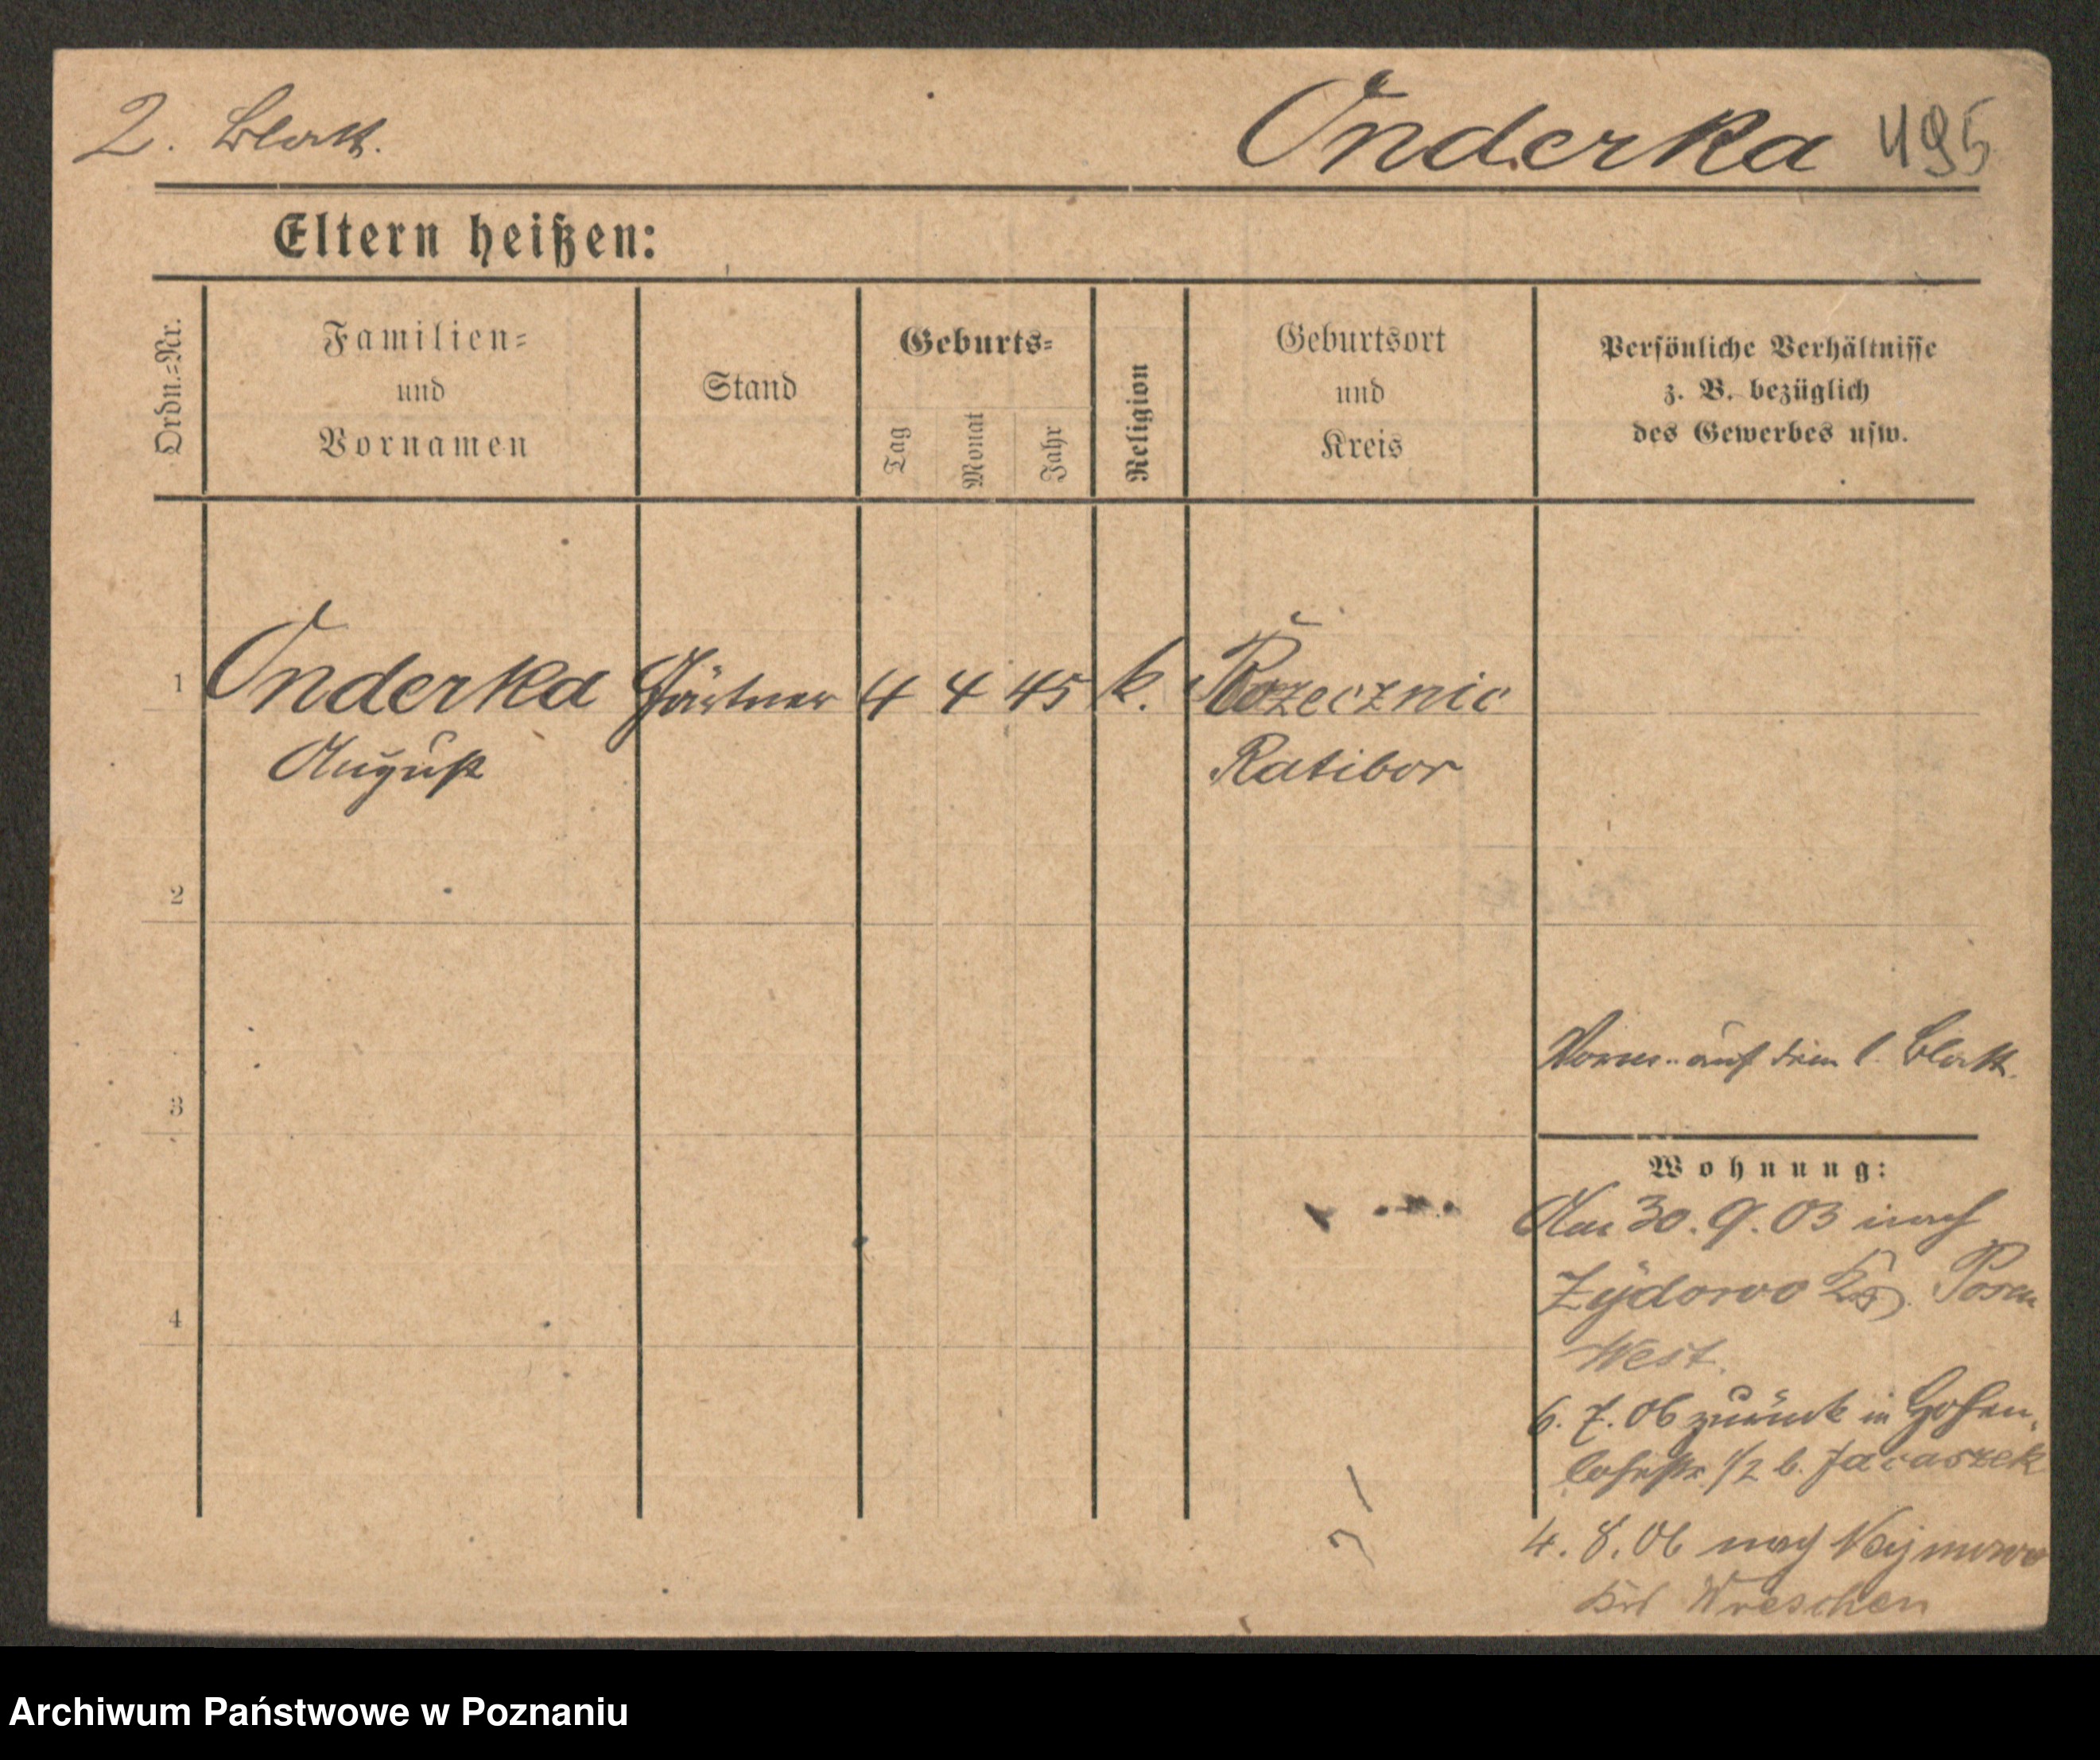 2. Blatt.
Onderka 495
Eltern heißen:
Ordn.=Nr.
Familien=
und
Vornamen
Stand
Geburts=
Tag
Monat
Jahr
Religion
Geburtsort
und
Kreis
Persönliche Verhältnisse
z. B. bezüglich
des Gewerbes usw.
1 Onderka Gärtner 4 4 45 k.
August
Ratibor
2
3
4
auf dem 1. Blatt.
Wohnung:
Am 30.9.03 nach
Zydowo Krs. Posen
West.
6.7.06 zurück in Hohen-
lohestr. 1/2 b.
4.8.06 nach
Krs Wreschen
Archiwum Państwowe w Poznaniu